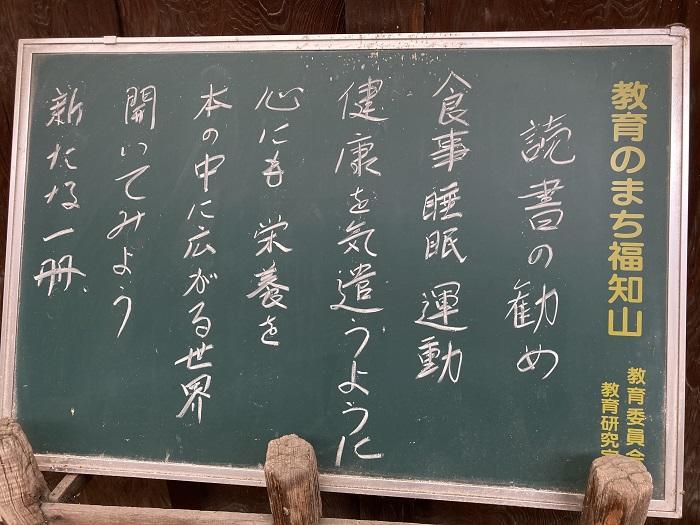 教育のまち福知山
教育委員会
教育研究
読書の勧め
食事睡眠運動
健康を気遣うように
心にも栄養を
本の中に広がる世界
開いてみよう
新たな一册